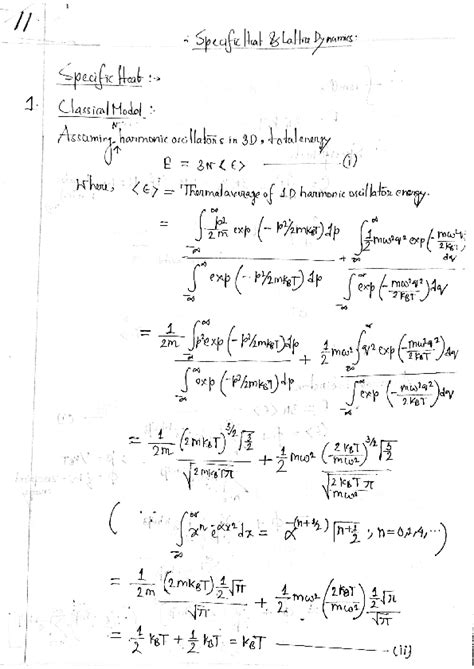 11
Specific Heat & Lattice Dynamics
Specific Heat :→
1. Classical Model :-
Assuming N harmonic oscillators in 3D, total energy
E = 3N <ε> ——— (i)
Where, <ε> = Thermal average of 1D harmonic oscillator energy.
= ∫_{-∞}^{∞} p²/2m exp(-p²/2mk_BT) dp / ∫_{-∞}^{∞} exp(-p²/2mk_BT) dp + ∫_{-∞}^{∞} 1/2 mω²q² exp(-mω²q²/2k_BT) dq / ∫_{-∞}^{∞} exp(-mω²q²/2k_BT) dq
= 1/2m ∫_{-∞}^{∞} p² exp(-p²/2mk_BT) dp / ∫_{-∞}^{∞} exp(-p²/2mk_BT) dp + 1/2 mω² ∫_{-∞}^{∞} q² exp(-mω²q²/2k_BT) dq / ∫_{-∞}^{∞} exp(-mω²q²/2k_BT) dq
= 1/2m (2mk_BT)^{3/2} Γ3/2 / √(2mk_BTπ) + 1/2 mω² (2k_BT/mω²)^{3/2} Γ3/2 / √(2k_BTπ/mω²)
( ∵ ∫_{-∞}^{∞} xⁿ e^{-αx²} dx = α^{-(n+1/2)} Γ(n+1)/2 ; n=0,2,4,...)
= 1/2m (2mk_BT) 1/2 √π / √π + 1/2 mω² (2k_BT/mω²) 1/2 √π / √π
= 1/2 k_BT + 1/2 k_BT = k_BT ——— (ii)